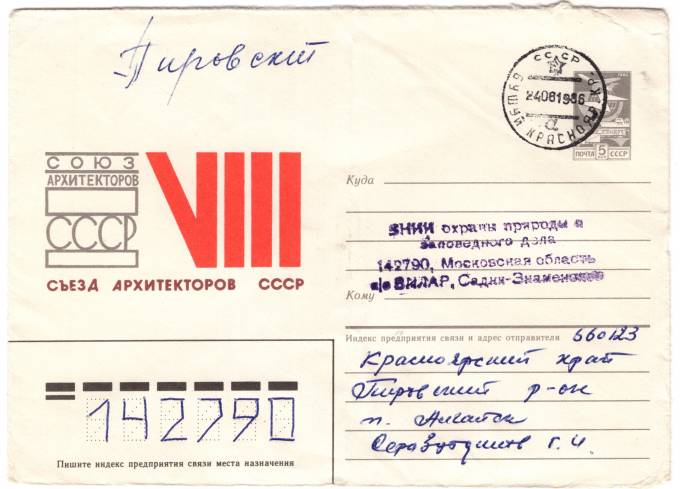 Пировский
СССР
24061986
КРАСНОЯРСК. КР.
ПОЧТА 5 СССР
СОЮЗ
АРХИТЕКТОРОВ
СССР
VIII
СЪЕЗД АРХИТЕКТОРОВ СССР
Куда
ВНИИ охраны природы и
заповедного дела
142790, Московская область
п/о ВИЛАР, Садки-Знаменское
Кому
Индекс предприятия связи и адрес отправителя 660123
Красноярский край
Пировский р-он
п.
Г. И.
142790
Пишите индекс предприятия связи места назначения